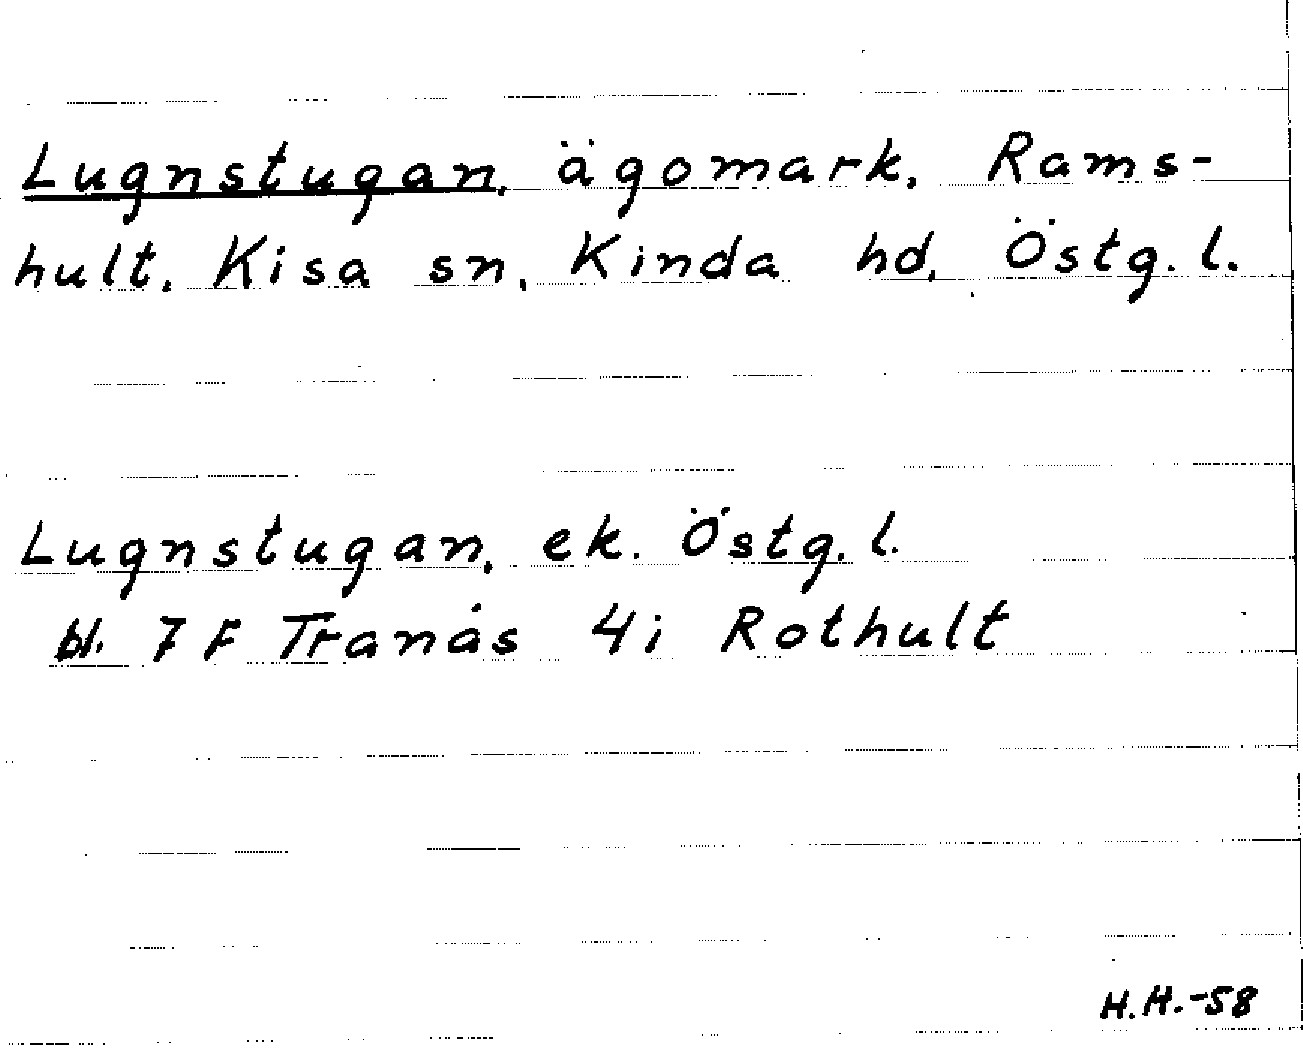 Lugnstugan, ägomark, Rams-
hult, Kisa sn, Kinda hd, Östg. l.
Lugnstugan, ek. Östg. l.
bl. 7 F Tranås 4i Rothult
H.H.-58